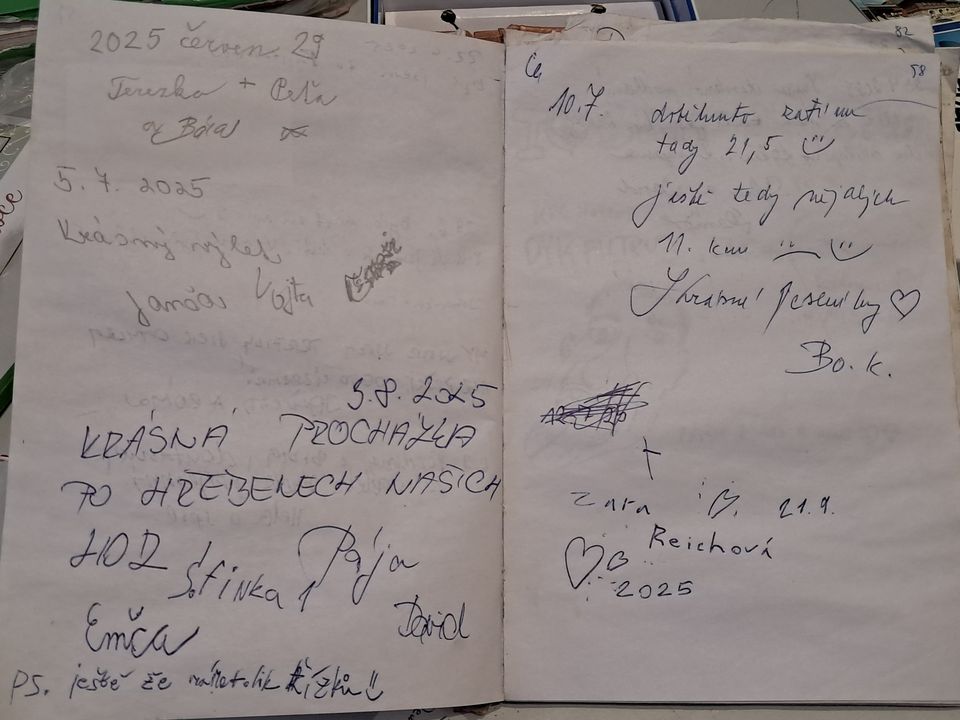 2025 červen 29
Terezka + Peťa
Bára
5.7.2025
Krásný výlet
Vojta
3.8.2025
KRÁSNÁ PROCHÁZKA
PO HŘEBENECH NAŠICH
HOR
Štinka Pája
Emča David
PS. ještě že máte tolik řízků
58
10.7. dosáhnuto zatím
tady 21,5
ještě tedy nějakých
11. km
Krásné Jeseníky ♡
Bo. k.
Zara B. 21.9.
Reichová
2025